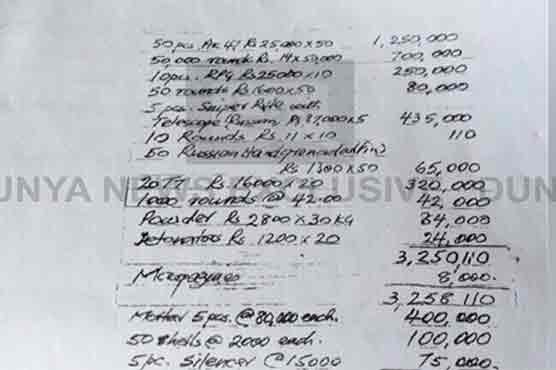 50 pcs. AK 47 Rs 25,000 x 50 1,250,000
50,000 rounds Rs. 14 x 50,000 700,000
10 pcs. RPG Rs 25000 x 10 250,000
50 rounds Rs 1600 x 50 80,000
5 pcs. Sniper Rifle with
Telescope Russian Rs 87,000 x 5 435,000
10 Rounds Rs. 11 x 10 110
50 Russian Handgrenaded
Rs 1300 x 50 65,000
UNYA NEWS EXCLUSIVE DUN
20 TT Rs. 16000 x 20 320,000
1000 rounds @ 42.00 42,000
Powder Rs 2800 x 30 KG 84,000
Detonators Rs. 1200 x 20 24,000
3,250,110
Magazines 8,000.
3,258,110
Motter 5 pcs. @ 80,000 each. 400,000
50 shells @ 2000 each. 100,000
5 pc. Silencer @ 15000 75,000